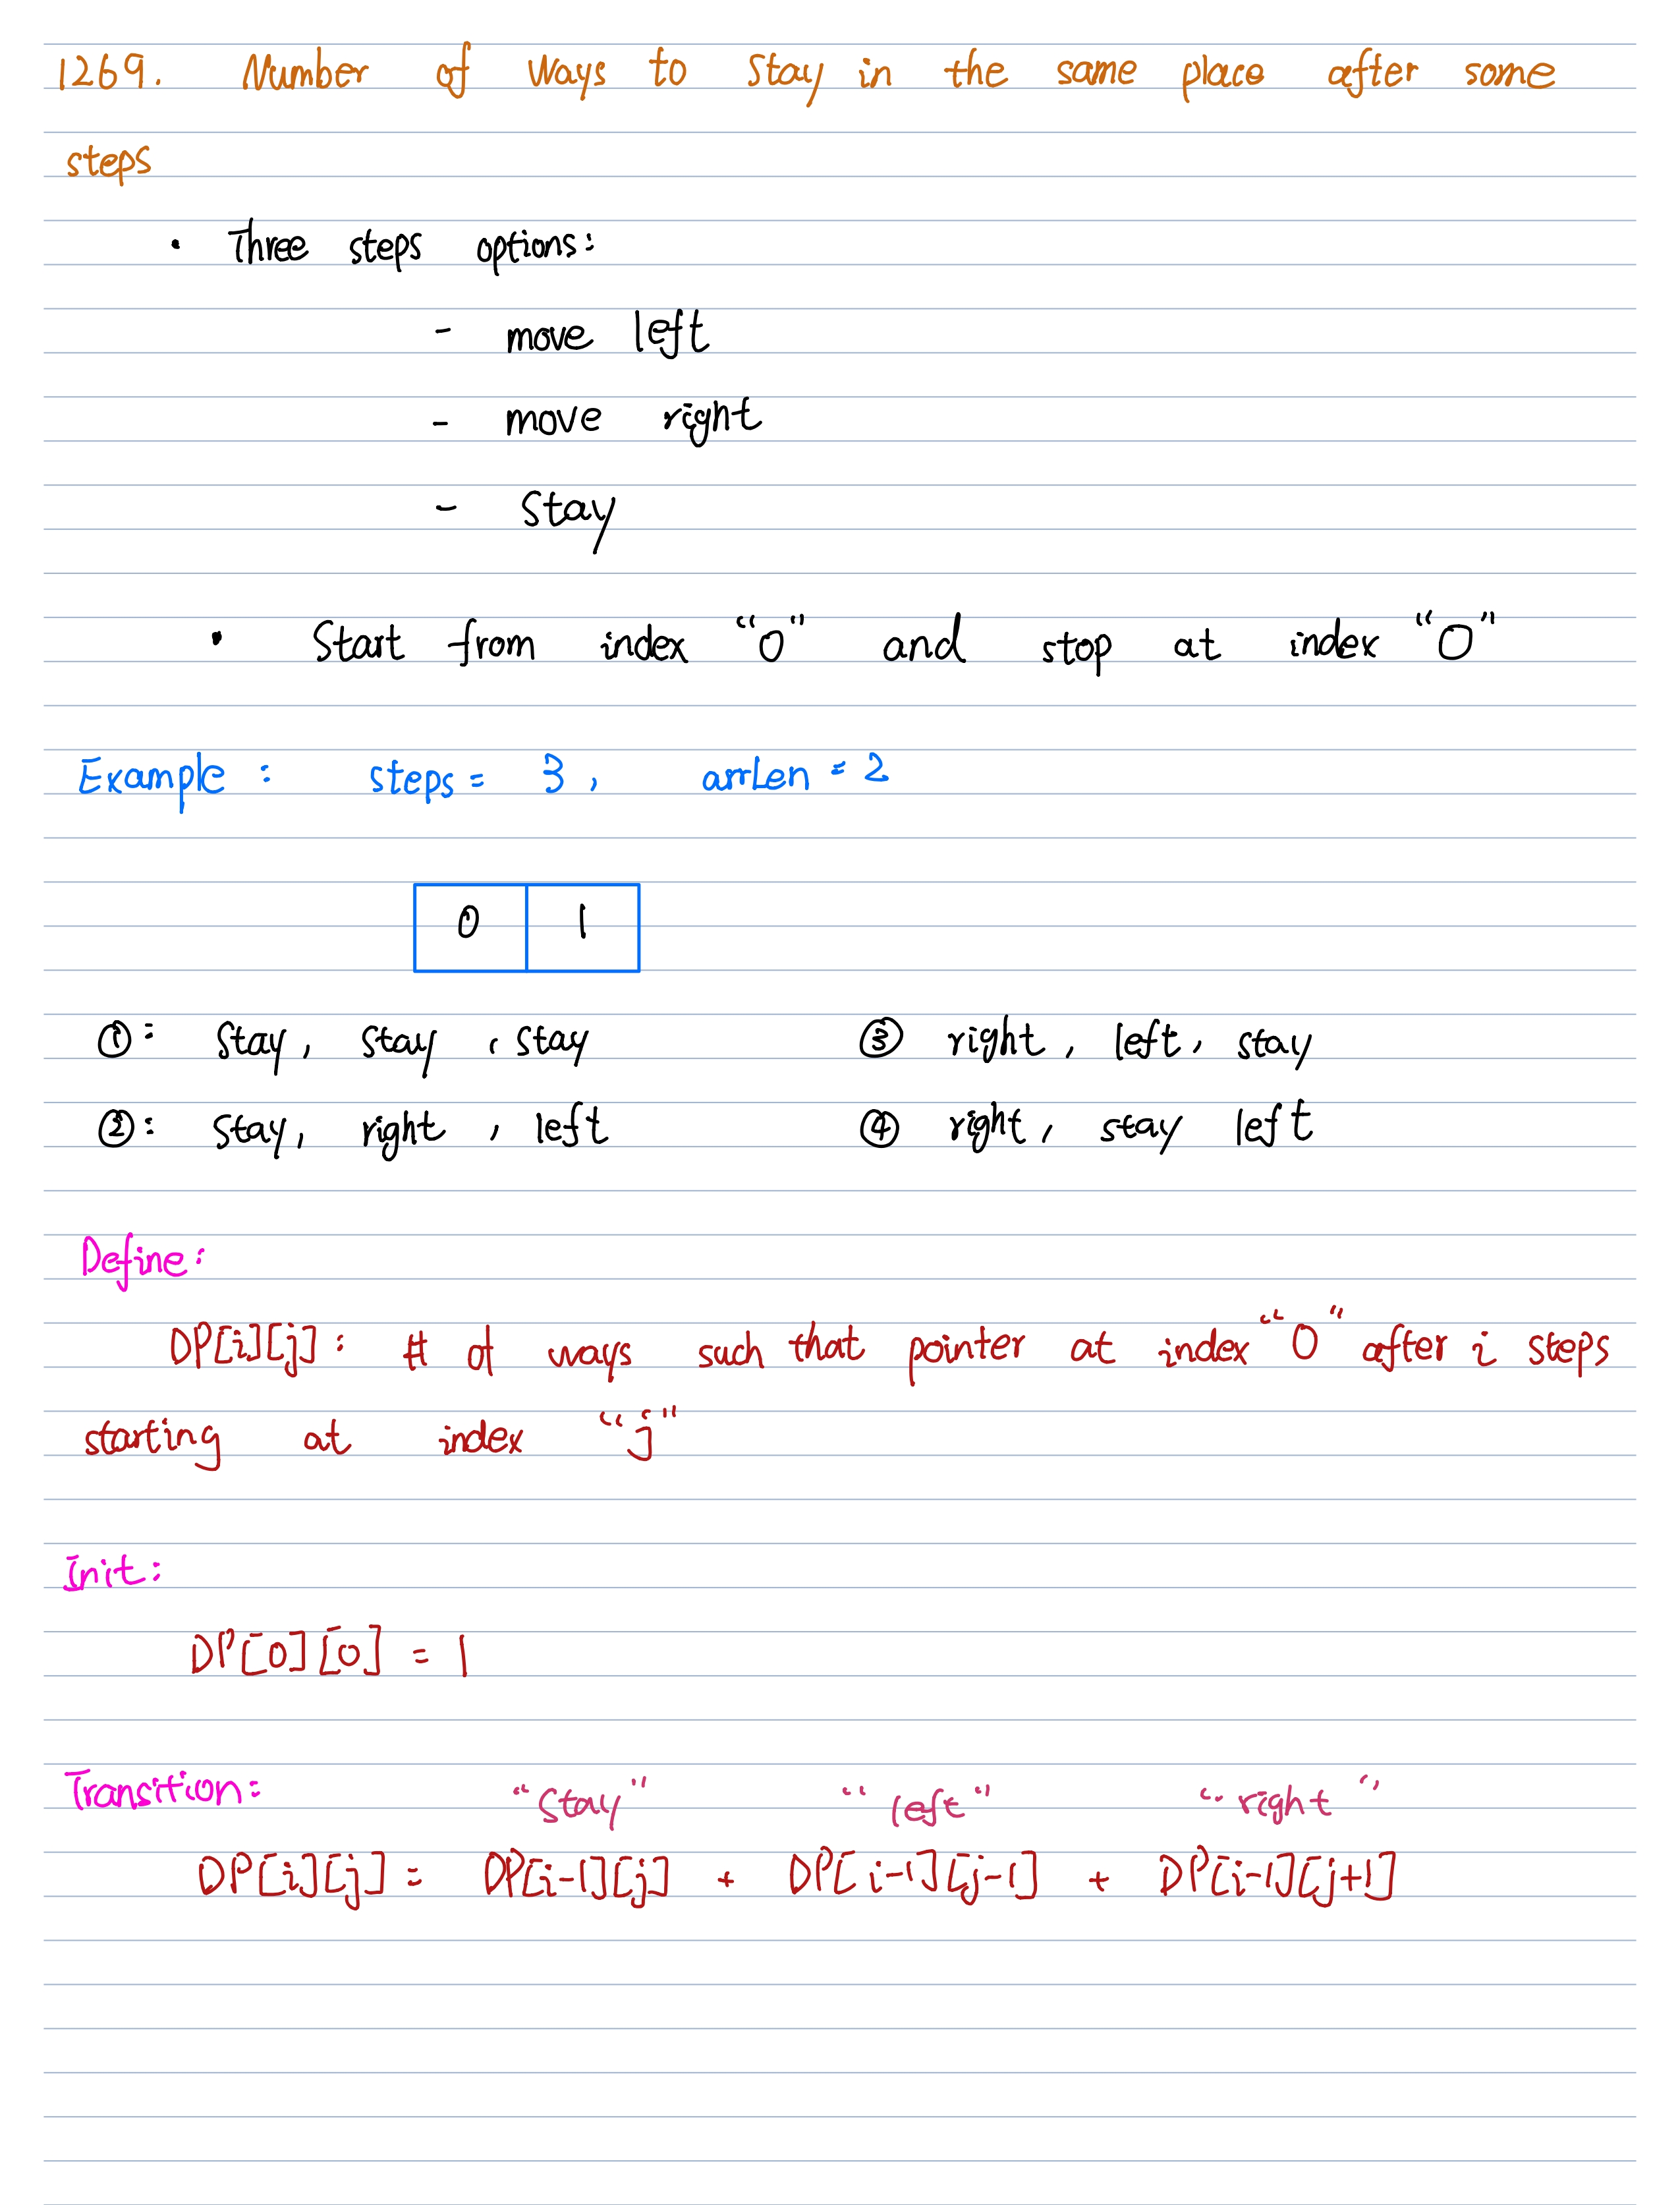 1269. Number of Ways to Stay in the same place after some
steps
• Three steps options:
- move left
- move right
- Stay
• Start from index "0" and stop at index "0"
Example : steps = 3, arrLen = 2
0 1
①: Stay, stay, stay ③ right, left, stay
②: Stay, right, left ④ right, stay left
Define:
DP[i][j]: # of ways such that pointer at index "0" after i steps
starting at index "j"
Init:
DP[0][0] = 1
Transition: "Stay" "left" "right"
DP[i][j] = DP[i-1][j] + DP[i-1][j-1] + DP[i-1][j+1]